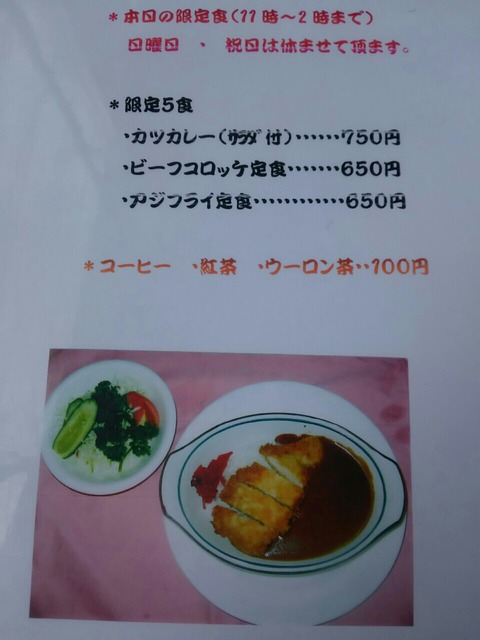 ＊本日の限定食（11時～2時まで）
日曜日・祝日は休ませて頂ます。
＊限定5食
・カツカレー（ｻﾗﾀﾞ付）……750円
・ビーフコロッケ定食……・650円
・アジフライ定食…………650円
＊コーヒー ・紅茶 ・ウーロン茶・・100円